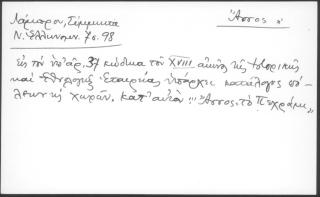 Λάμπρου, Σύμμικτα
Ἄσσος
Ν. Ἑλληνομν. 7ος. 98
εἰς τὸν ὑπ' ἀρ. 37 κώδικα τοῦ XVIII αἰῶνος τῆς Ἱστορικῆς
καὶ Ἐθνολογ. Ἑταιρείας ὑπάρχει κατάλογος πό-
λεων τῆς χωρῶν, κατ' αὐτὸν "Ἄσσος, τὸ Πεχράμι"